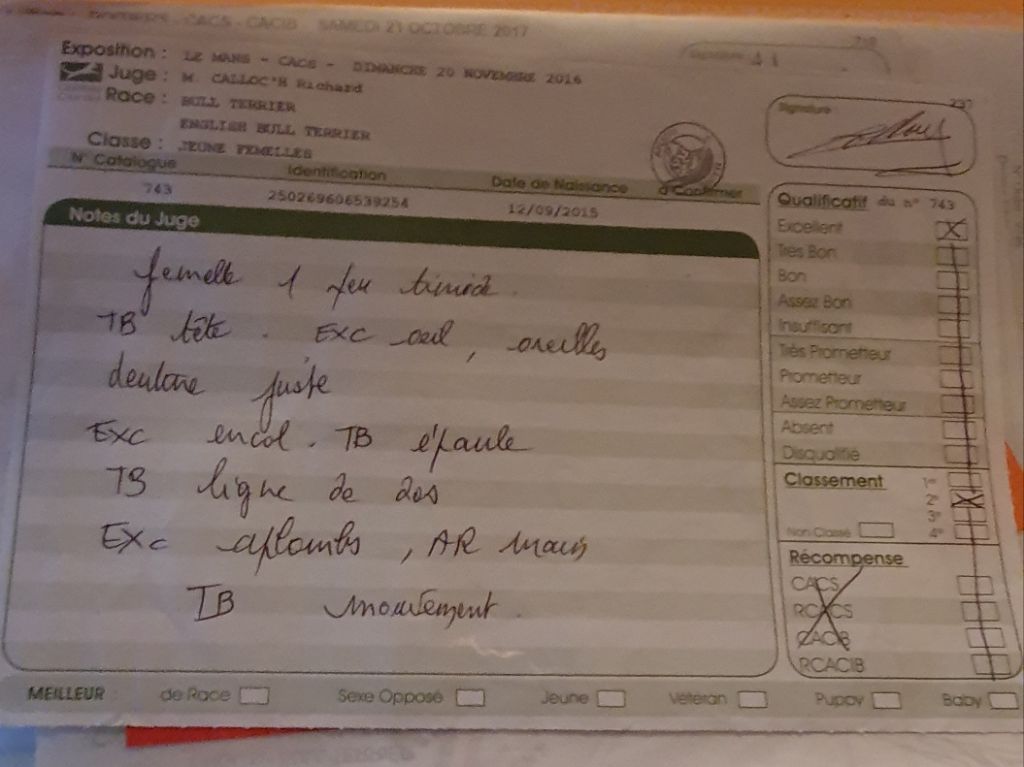 CACS - CACIB SAMEDI 21 OCTOBRE 2017
Exposition : LE MANS - CACS - DIMANCHE 20 NOVEMBRE 2016
Juge : M. CALLOC'H Richard
Race : BULL TERRIER
ENGLISH BULL TERRIER
Classe : JEUNE FEMELLES
N° Catalogue Identification Date de Naissance à Confirmer
743 250269606539254 12/09/2015
Notes du Juge
femelle 1 peu timide.
TB tête. EXC oeil, oreilles
denture juste
EXC encol. TB épaule
TB ligne de dos
EXC aplombs, AR mais
TB mouvement.
Signature
737
Qualificatif du n° 743
Excellent X
Très Bon
Bon
Assez Bon
Insuffisant
Très Prometteur
Prometteur
Assez Prometteur
Absent
Disqualifié
Classement 1°
2° X
3°
Non Classé 4°
Récompense
CACS
RCACS
CACIB
RCACIB
MEILLEUR : de Race Sexe Opposé Jeune Vétéran Puppy Baby